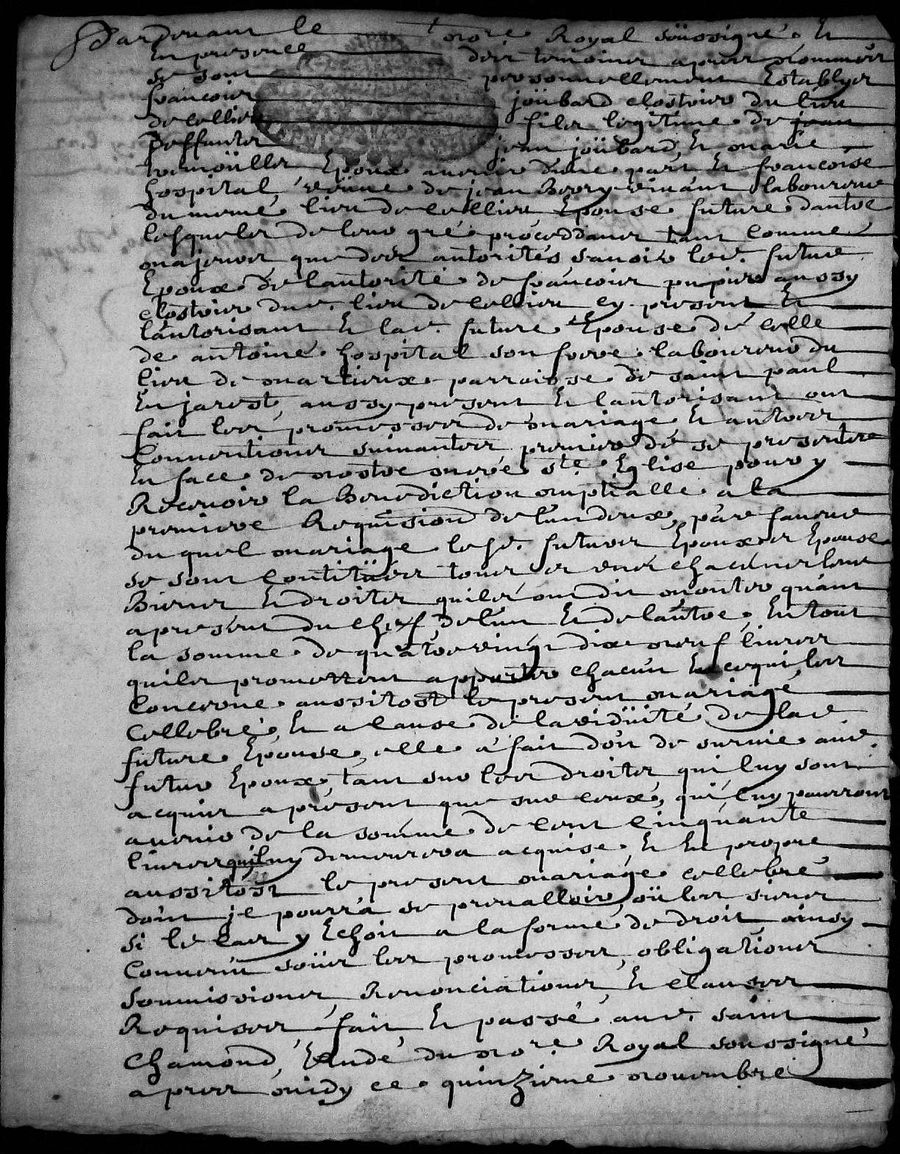 Pardevant le notre Royal soussigné Et
En presence des temoins apres nommés
se sont personnellement Establyes
francois joübard clostrier du lieu
de cellieu fils legitime de jean
deffunts jean joübard, Et marie
Epoux advenir dune part Et francoise
hospital vefve de jean vivant laboureur
du meme lieu de cellieu Epouse future dautre
lesquels de leur gré proceddants tant comme
majeurs que des autorités savoir led. futur
Epoux de lautorité de francois aussy
clostrier dud. lieu de cellieu cy present Et
lautorisant Et lad. future Epouse de celle
de antoine hospital son frere laboureur du
lieu de parroisse de saint paul
En jarest, aussy present Et lautorisant ont
fait les promesses de mariage Et autres
Conventions suivantes premier de se presenter
En face de nostre mere ste Eglise pour y
Recevoir la Benediction nuptialle a la
premiere Requision de lun deux, par faveur
du quel mariage les d. futurs Epoux Epouse
se sont Contitües tous Et chacuns leurs
Biens Et droits quiles ont dit monter quant
a present du chef de lun Et de lautre, En tout
la somme de quatre vingt dix neuf livres
quiles promettent apporter chacun En ce quiles
Concerne aussitost le present mariage
Cellebré, Et a Cause de la viduité de lad
future Epouse, elle a fait don de survie aud.
futur Epoux, tant sur les droits qui luy sont
acquis a present que sur ceux, qui luy pourront
avenir de la somme de cent cinquante
livres quy luy demeurera acquise Et En propre
aussitost le present mariage cellebré
dont je pourra se prevalloir oü les siens
si le Cas y Echoit a la forme de droit ainsy
Convenu soüs les promesses, obligations
soumissions, Renonciations, Et clauses
Requises fait Et passé aud. saint
Chamond, Etude du notre Royal soussigné
apres midy ce quinzieme novembre